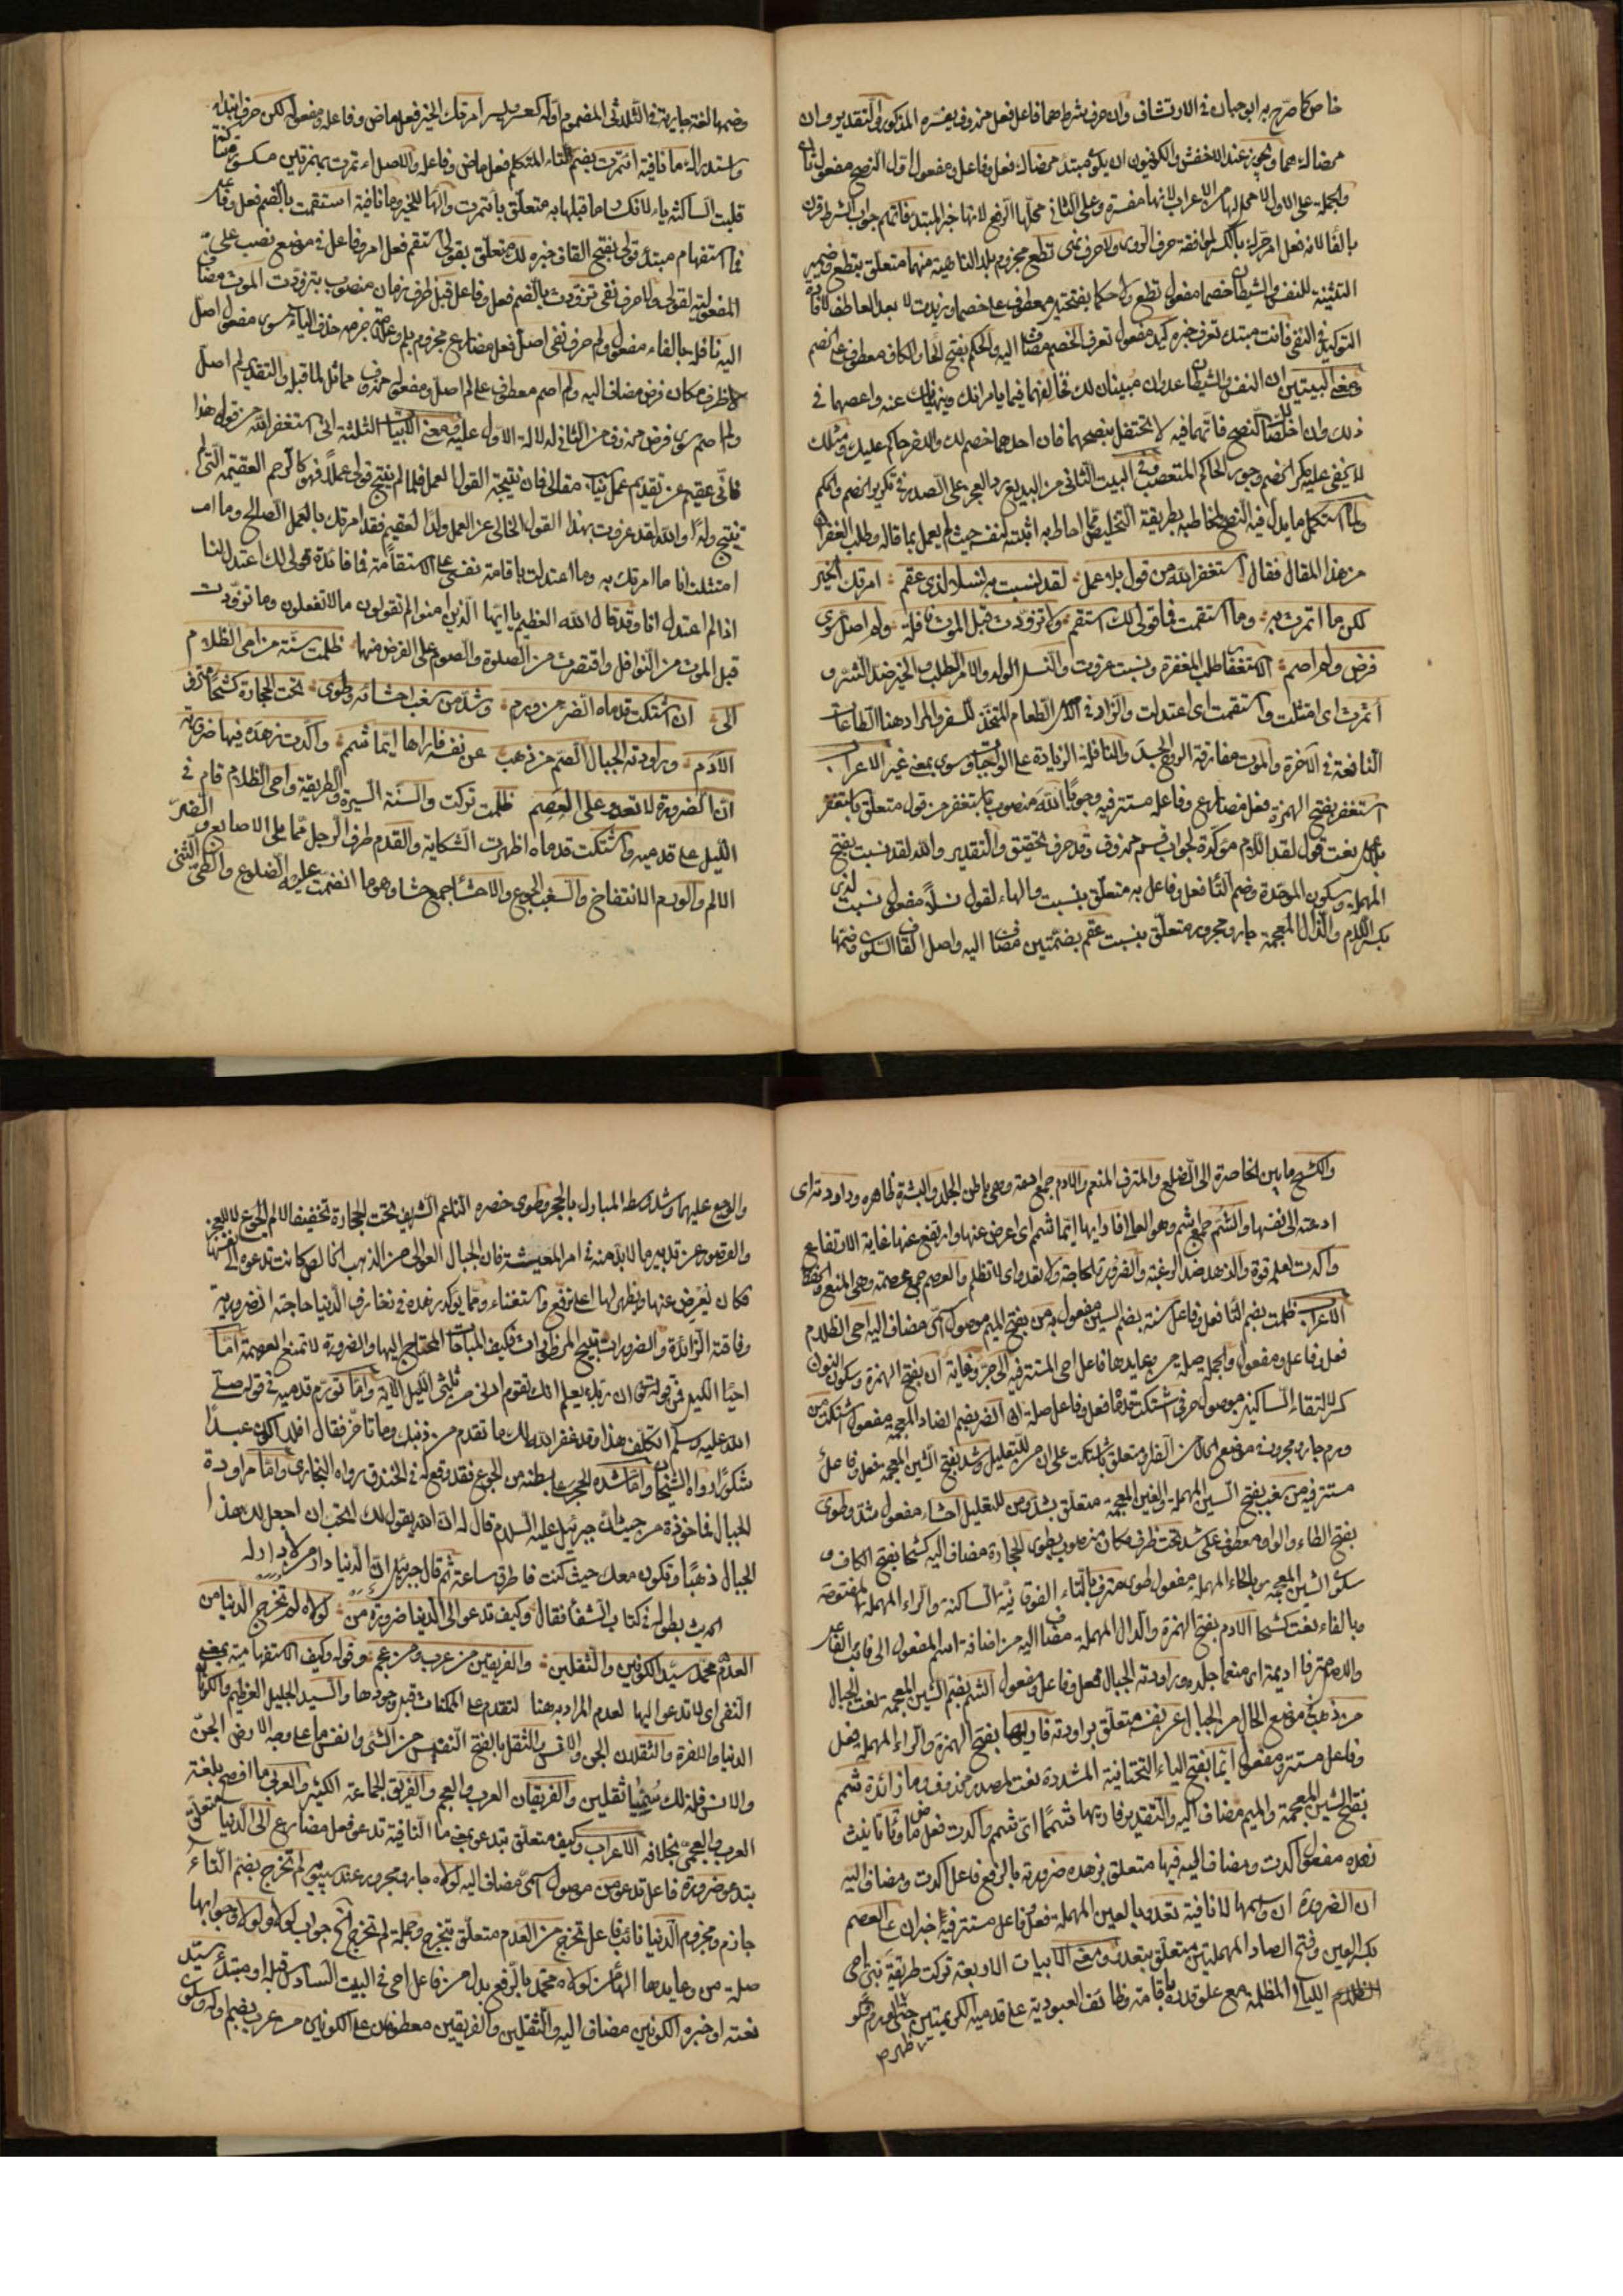 خاص كما صرّح به ابو حيان في الارتشاف وان حرف شرط هما فاعل فعل محذوف يفسره المذكور والتقدير وان
محضاك هما ويجوز عند الاخفش والكوفيون ان يكون مبتدأ محضاك فعل وفاعل ومفعول اول النصح مفعول ثان
والجملة على الاول لا محل لها من الاعراب لانها مفسرة وعلى الثاني محلها الرفع لانها خبر المبتدأ فاتهم جواب الشرط قرن
بالفاء لانه فعل امر حرك بالكسر لموافقة حرف الروي ولا حرف نهي تطع مجزوم بلا الناهية منهما متعلق بتطع وضمير
التثنية للنفس والشيطان خصما مفعول تطع ولا حكما بفتحتين معطوف على خصما وزيدت لا بعد العاطف لافادة
التوكيد في النفي فانت مبتدأ تعرف خبره كيد مفعول تعرف الخصم مضاف اليه والحكم بفتح الحاء والكاف معطوف على الخصم
ومعنى البيتين ان النفس والشيطان عدوان مبينان لك فخالفهما فيما يامرانك وينهيانك عنه واعصهما في
ذلك وان اخلصاك النصح فاتهمهما فيه لا تحتفل بنصحهما فان احدهما خصم لك والاخر حاكم عليك ومثلك
لا يخفى عليه مكر الخصم وجور الحاكم المتعصب وفي البيت الثاني من البديع رد العجز على الصدر في تكرير الخصم والحكم
ولما استكمل ما يدل فيه النصح لمخاطبه بطريقة التخليص مما احاط به اثبت لنفسه حيث لم يعمل بما قاله وطلب الغفران
من هذا المقال فقال استغفر الله من قول بلا عمل لقد نسبت به نسلا لذي عقم امرتك الخير
لكن ما ائتمرت به وما استقمت فما قولي لك استقم ولا تزودت قبل الموت نافلة ولم اصل سوى
فرض ولم اصم الاستغفار طلب المغفرة ونسبت عزوت والنسل الولد والامر الطلب والخير ضد الشر و
ائتمرت اي امتثلت واستقمت اي اعتدلت والزاد في الاصل الطعام المتخذ للسفر والمراد هنا الطاعات
النافعة في الآخرة والموت مفارقة الروح الجسد والنافلة الزيادة على الواجبات وسوى بمعنى غير الاعراب
استغفر بفتح الهمزة فعل مضارع وفاعله مستتر فيه وجوبا الله منصوب باستغفر من قول متعلق باستغفر
بلا عمل نعت قول لقد اللام مؤكدة لجواب قسم محذوف وقد حرف تحقيق والتقدير والله لقد نسبت بفتح
المهملة وسكون الموحدة وضم التاء فعل وفاعل به متعلق بنسبت والهاء لقول نسلا مفعول نسبت لذي
بكسر اللام والذال المعجمة جار ومجرور متعلق بنسبت عقم بضمتين مضاف اليه واصل القاف السكون وضمها
وضمها لغة جارية في الثلاثي المضموم اوله كعسر ويسر امرتك الخير فعل ماض وفاعله ومفعوله لكن حرف ابتداء
واستدراك ما نافية ائتمرت بضم التاء المتكلم فعل ماض وفاعل والاصل اءتمرت بهمزتين مكسورة فساكنة
قلبت الساكنة ياء لانكسار ما قبلها به متعلق بائتمرت والهاء للخير وما نافية استقمت بالضم فعل وفاعل
فما استفهام مبتدأ قولي بفتح القاف خبره لك متعلق بقولي استقم فعل امر وفاعل في موضع نصب على
المفعولية لقولي ولا حرف نفي تزودت بالضم فعل وفاعل قبل ظرف زمان منصوب بتزودت الموت مضاف
اليه نافلة بالفاء مفعول ولم حرف نفي اصل فعل مضارع مجزوم بلم وعلامة جزمه حذف الياء سوى مفعول اصل
لا ظرف مكان فرض مضاف اليه ولم اصم معطوف على لم اصل ومفعوله محذوف مماثل لما قبله والتقدير لم اصل
ولم اصم سوى فرض حذف من الثاني لدلالة الاول عليه ومعنى الابيات الثلثة اني استغفر الله من قولي هذا
فاني عقيم عن تقديم عمل نتيجة القول العمل فلما لم ينتج قولي عملا فهو كالرحم العقيمة التي لم
تنتج ولدا والله لقد عزوت بهذا القول الخالي عن العمل ولدا لعقيم فقد امرتك بالعمل الصالح وما
امتثلت انا ما امرتك به وما اعتدلت باقامة نفسي على الاستقامة فما فائدة قولي لك اعتدل انت
اذا لم اعتدل انا وقد قال الله العظيم يا ايها الذين امنوا لم تقولون ما لا تفعلون وما تزودت
قبل الموت من النوافل واقتصرت من الصلوة والصوم على الفرض منها ظلمت سنة من احيى الظلام
الى ان اشتكت قدماه الضر من ورم وشد من سغب احشاءه وطوى تحت الحجارة كشحا مترف
الادم وراودته الجبال الشم من ذهب عن نفسه فاراها ايما شمم واكدت زهده فيها ضرورته
ان الضرورة لا تعدو على العصم ظلمت تركت والسنة السيرة والطريقة واحيى الظلام قام في
الليل على قدميه واشتكت قدماه اظهرت الشكاية والقدم طرف الرجل مما يلي الاصابع والضر
الالم والورم الانتفاخ والسغب الجوع والاحشاء جمع حشا وهو ما انضمت عليه الضلوع والطي الثني
والكشح ما بين الخاصرة الى الضلع والمترف المنعم والادم جمع ادمة وهي باطن الجلد والبشرة ظاهره وراودته اي
ادعته الى نفسها والشم جمع اشم وهو العالي فاراها ايما شمم اي اعرض عنها وارتفع عنها غاية الارتفاع
واكدت لعله قوة والزهد ضد الرغبة والضرورة الحاجة ولا تعدو اي لا تظلم والعصم جمع عصمة وهي المنع والحفظ
الاعراب ظلمت بضم التاء فعل وفاعل سنة بضم السين مفعول به من بفتح الميم موصول اسمي مضاف اليه احيى الظلام
فعل وفاعل ومفعول والجملة صلة من وعايدها فاعل احيى المستتر فيه الى حرف جر وغاية ان بفتح الهمزة وسكون النون
كسر لالتقاء الساكنين موصول حرفي اشتكت قدماه فعل وفاعل صلة ان الضر بضم الضاد المعجمة مفعول اشتكت من
ورم جار ومجرور في موضع الحال من الضر او متعلق باشتكت على ان من للتعليل وشد بفتح الشين المعجمة فعل وفاعل
مستتر فيه من سغب بفتح السين المهملة والغين المعجمة متعلق بشد ومن للتعليل احشاءه مفعول شد وطوى
بفتح الطاء والواو معطوف على شد تحت ظرف مكان منصوب بطوى الحجارة مضاف اليه كشحا بفتح الكاف و
سكون الشين المعجمة وبالحاء المهملة مفعول طوى مترف بالتاء الفوقانية الساكنة والراء المهملة المفتوحة
وبالفاء نعت كشحا الادم بفتح الهمزة والدال المهملة مضاف اليه من اضافة اسم المفعول الى نائب الفاعل
والاصل مترفا اديمه اي منعما جلده وراودته الجبال فعل وفاعل ومفعول الشم بضم الشين المعجمة نعت الجبال
من ذهب في موضع الحال من الجبال عن نفسه متعلق براودته فاراها بفتح الهمزة والراء المهملة فعل
وفاعل مستتر ومفعول ايما بفتح الياء التحتانية المشددة نعت لمصدر محذوف وما زائدة شمم
بفتح الشين المعجمة والميم مضاف اليه والتقدير فاراها شمما اي شمم واكدت فعل ماض وتاء تانيث
زهده مفعول اكدت ومضاف اليه فيها متعلق بزهده ضرورته بالرفع فاعل اكدت ومضاف اليه
ان الضرورة ان واسمها لا نافية تعدو بالعين المهملة فعل وفاعل مستتر فيه خبر ان على العصم
بكسر العين وفتح الصاد المهملتين متعلق بتعدو ومعنى الابيات الاربعة تركت طريقة نبي احيى
الظلام الليالي المظلمة مع علو قدره باقامة وظائف العبودية على قدميه الكريمتين حتى تورم
والوجع عليهما وشد وسطه المبارك بالحجر وطوى خصره الناعم الشريف تحت الحجارة تخفيفا لالم الجوع لا للعجز
والقصور عن تدبير ما لا بد منه في امر المعيشة فان الجبال العوالي من الذهب الخالص كانت تدعوه الى نفسها
فكان يعرض عنها ويظهر لها اعلى ترفع واستغناء ومما يوكد زهده في زخارف الدنيا حاجته الضرورية
وفاقته الزائدة والضرورات تبيح المحظورات فكيف المباحات المحتاج اليها والضرورة لا تمنع العصمة اما
احياء الليل فمن قوله تعالى ان ربك يعلم انك تقوم ادنى من ثلثي الليل الآية واما تورم قدميه في قوله صلى
الله عليه وسلم اتكلف هذا وقد غفر الله لك ما تقدم من ذنبك وما تأخر فقال افلا اكون عبدا
شكورا رواه الشيخان واما شده الحجر على بطنه من الجوع فقد وقع له في الخندق رواه البخاري واما مراودة
الجبال فماخوذة من حيث ان جبرئيل عليه السلام قال له ان الله يقول لك اتحب ان اجعل لك هذا
الجبال ذهبا وتكون معك حيث كنت فاطرق ساعة ثم قال يا جبرئيل ان الدنيا دار من لا دار له
الحديث بطوله في كتاب الشفا فقال وكيف تدعو الى الدنيا ضرورة من لولاه لم تخرج الدنيا من
العدم محمد سيد الكونين والثقلين والفريقين من عرب ومن عجم وقوله وكيف الاستفهامية بمعنى
النفي اي لا تدعو اليها لعدم المراد به هنا لتقدم على الممكنات قبل وجودها والسيد الجليل العظيم والكونان
الدنيا والاخرة والثقلان الجن والانس والثقل بالفتح النفيس من الشيء وانفس ما على وجه الارض الجن
والانس فلذلك سميا ثقلين والفريقان العرب والعجم والفريق الجماعة الكثير والعربي ما افصح بلغة
العرب والعجمي بخلافه الاعراب وكيف متعلق بتدعو بمعنى ما النافية تدعو فعل مضارع الى الدنيا متعلق
بتدعو ضرورة فاعل تدعو من موصول اسمي مضاف اليه لولاه جار ومجرور عند سيبويه لم تخرج بضم التاء
جازم ومجزوم الدنيا نائب فاعل تخرج من العدم متعلق بتخرج وجملة لم تخرج الخ جواب لولا ولولا وجوابها
صلة من وعايدها الهاء من لولاه محمد بالرفع بدل من فاعل احيى في البيت السادس قبله او مبتدأ سيد
نعته او خبره الكونين مضاف اليه والثقلين والفريقين معطوفان على الكونين من عرب بضم اوله وسكون